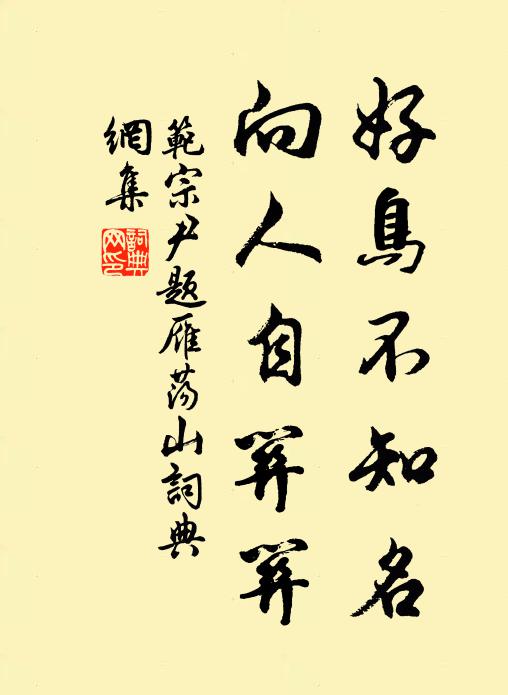 好鳥不知名
向人自關關
範宗尹題雁蕩山詞典
網集
詞典
网印